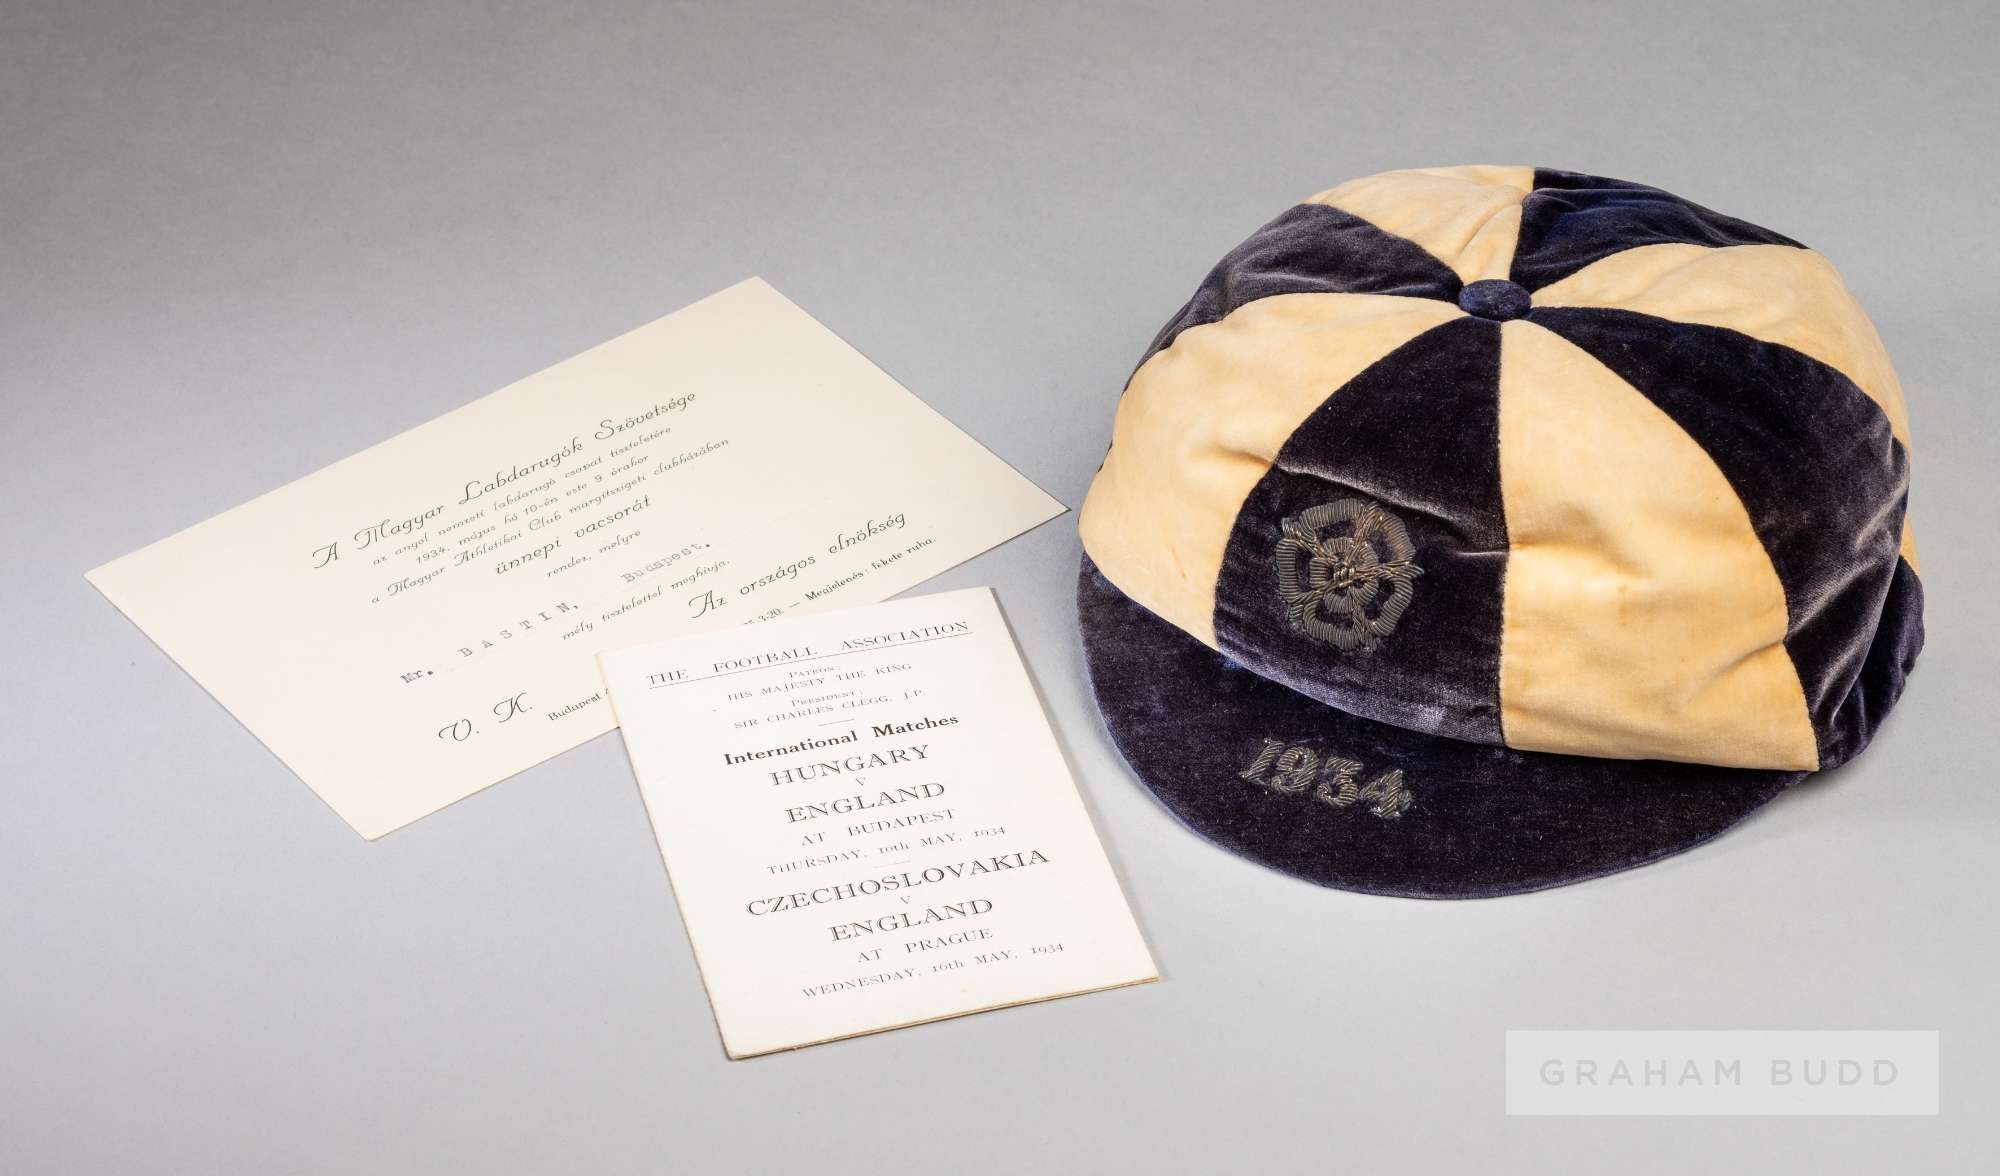 A Magyar Labdarugók Szövetsége
az angol nemzeti labdarugó csapat tiszteletére
1934. május hó 10-én este 9 órakor
a Magyar Athletikai Club margitszigeti clubházában
ünnepi vacsorát
rendez, melyre
Mr. BASTIN, Budapest.
mély tisztelettel meghivja.
Az országos elnökség
V. K. Budapest 3-20. — Megjelenés: fekete ruha.
THE FOOTBALL ASSOCIATION
PATRON:
HIS MAJESTY THE KING
PRESIDENT:
SIR CHARLES CLEGG, J.P.
International Matches
HUNGARY
V
ENGLAND
AT BUDAPEST
THURSDAY, 10th MAY, 1934
CZECHOSLOVAKIA
V
ENGLAND
AT PRAGUE
WEDNESDAY, 16th MAY, 1934
1934
GRAHAM BUDD